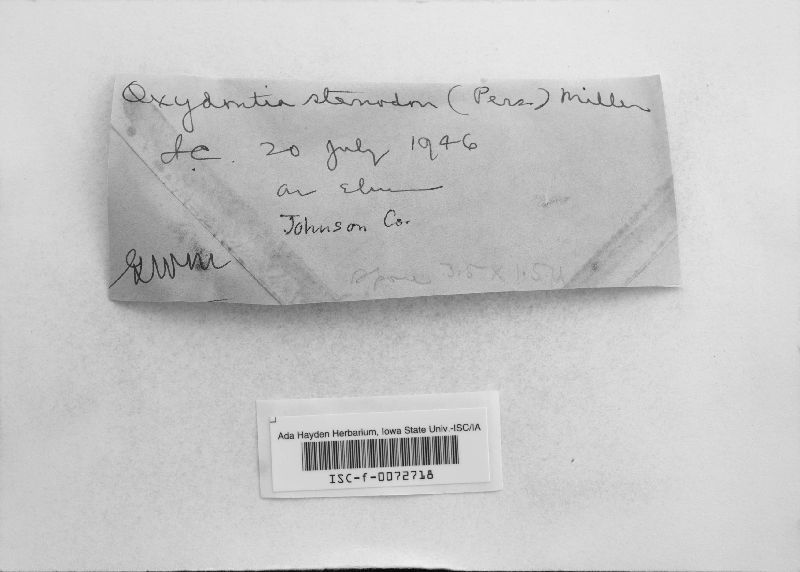 Oxydontia stenodon (Pers.) Miller
I.C. 20 July 1946
on Elm
Johnson Co.
GWM
Spore 3.5 X 1.5 u
Ada Hayden Herbarium, Iowa State Univ.-ISC/IA
ISC-f-0072718